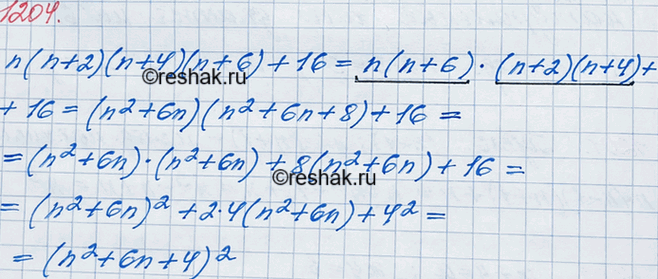 1204.
n(n+2)(n+4)(n+6)+16 = n(n+6)·(n+2)(n+4)+
©reshak.ru
+16 = (n²+6n)(n²+6n+8)+16 =
=(n²+6n)·(n²+6n)+8(n²+6n)+16 =
©reshak.ru
= (n²+6n)²+2·4(n²+6n)+4² =
= (n²+6n+4)²